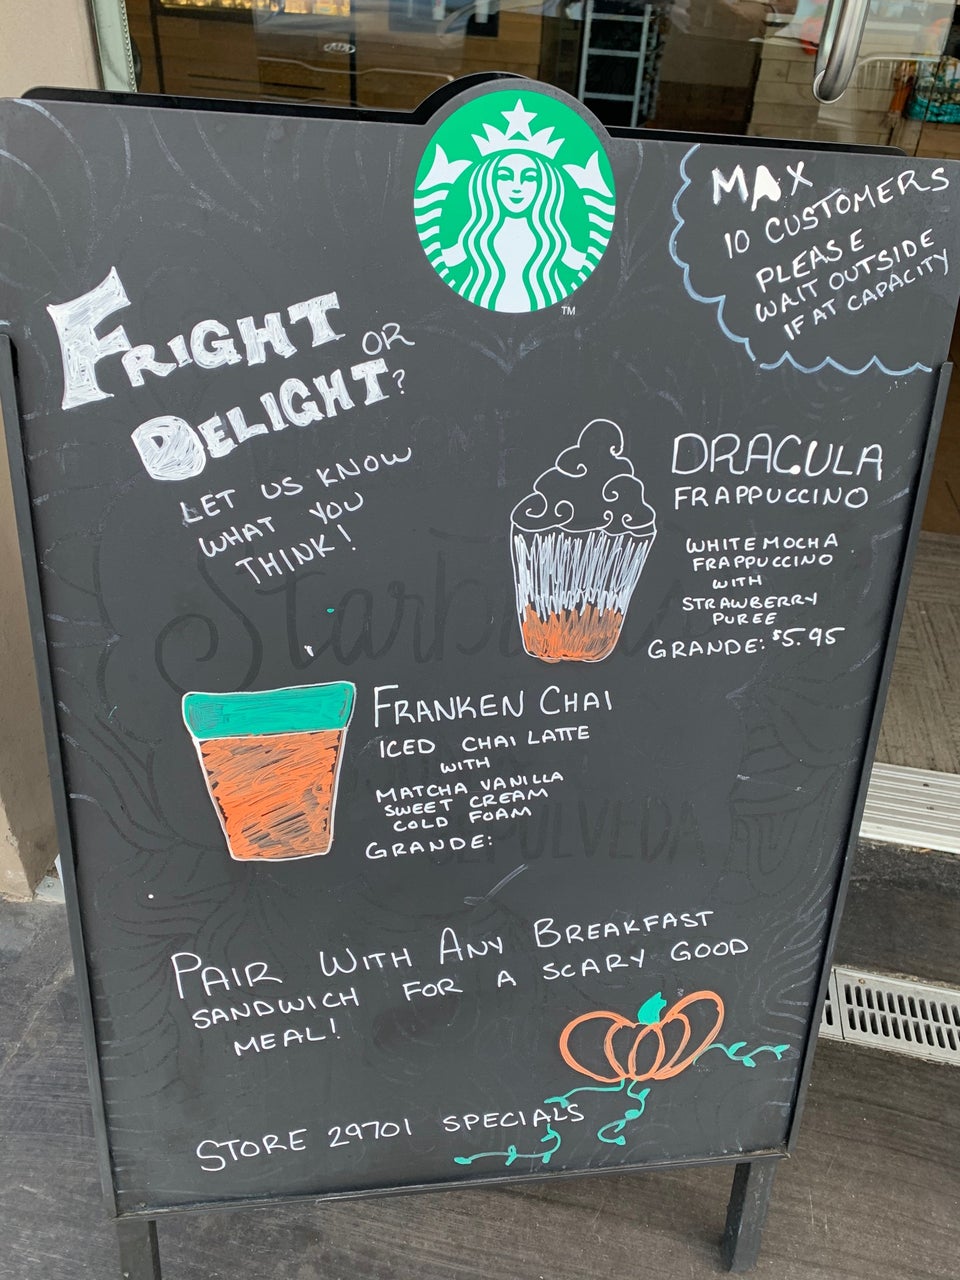 MAX
10 CUSTOMERS
PLEASE
WAIT OUTSIDE
IF AT CAPACITY
FRIGHT OR
DELIGHT?
LET US KNOW
WHAT YOU
THINK!
DRACULA
FRAPPUCCINO
WHITE MOCHA
FRAPPUCCINO
WITH
STRAWBERRY
PUREE
GRANDE: $5.95
FRANKEN CHAI
ICED CHAI LATTE
WITH
MATCHA VANILLA
SWEET CREAM
COLD FOAM
GRANDE:
PAIR WITH ANY BREAKFAST
SANDWICH FOR A SCARY GOOD
MEAL!
STORE 29701 SPECIALS
TM
Starbucks
SEPULVEDA